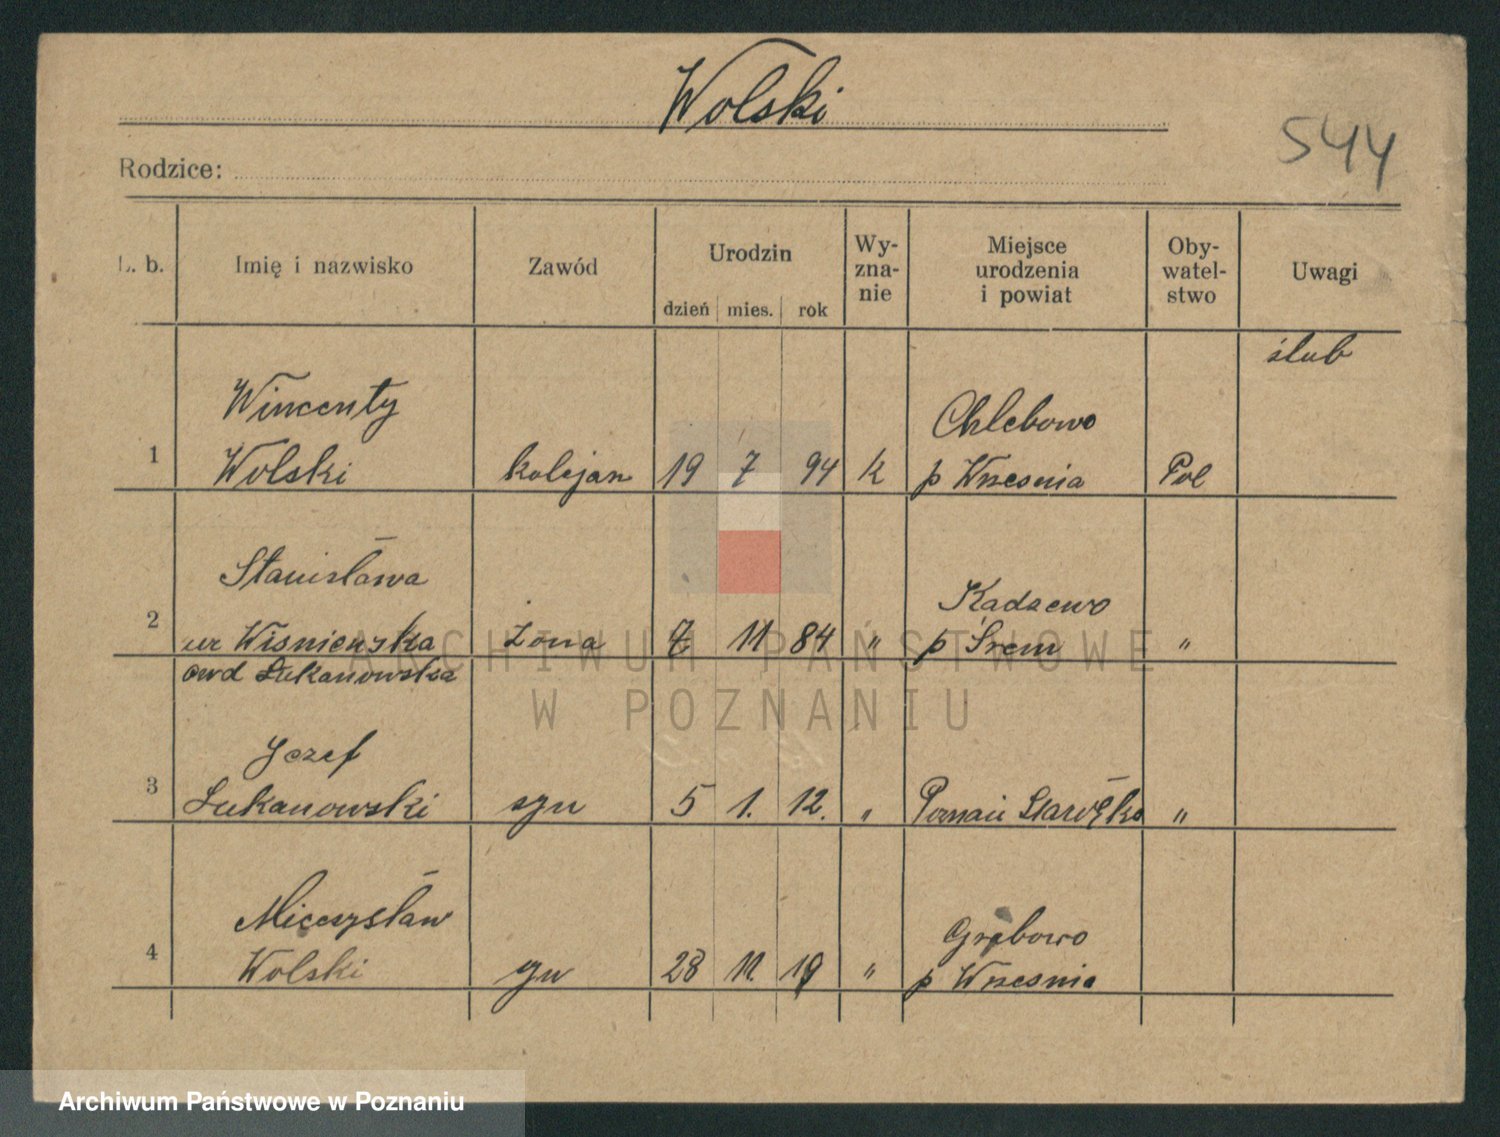 Wolski
544
Rodzice:
L. b.
Imię i nazwisko
Zawód
Urodzin
dzień mies. rok
Wy-
zna-
nie
Miejsce
urodzenia
i powiat
Oby-
watel-
stwo
Uwagi
ślub
Wincenty
Chlebowo
1 Wolski kolejarz 19 7 94 k p Wrzesnia Pol
Stanisława
Kadzewo
2 ur Wisniewska żona 7 11 84 " p Śrem "
owd Łukanowska
Jozef
3 Łukanowski syn 5 1. 12. " Poznań Starołęka "
Mieczysław
Grzbowo
4 Wolski syn 28 11. 19 " p Wrzesnia
ARCHIWUM PAŃSTWOWE
W POZNANIU
Archiwum Państwowe w Poznaniu